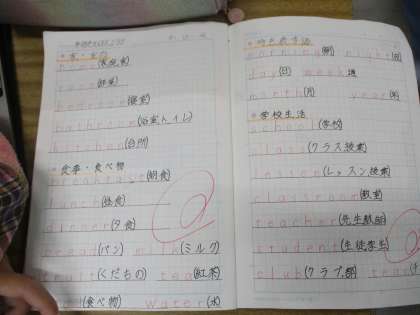 (家庭)
room(部屋)
bedroom(寝室)
bathroom(浴室トイレ)
kitchen(台所)
食事・食べ物
breakfast(朝食)
lunch(昼食)
dinner(夕食)
bread(パン) milk(ミルク)
fruit(くだもの) tea(紅茶)
(食べ物) water(水)
morning(朝) night(夜)
day(日) week 週
month(月) year(年)
学校生活
school(学校)
class(クラス授業)
lesson(レッスン授業)
classroom(教室)
teacher(先生教師)
student(生徒学生)
club(クラブ部) team